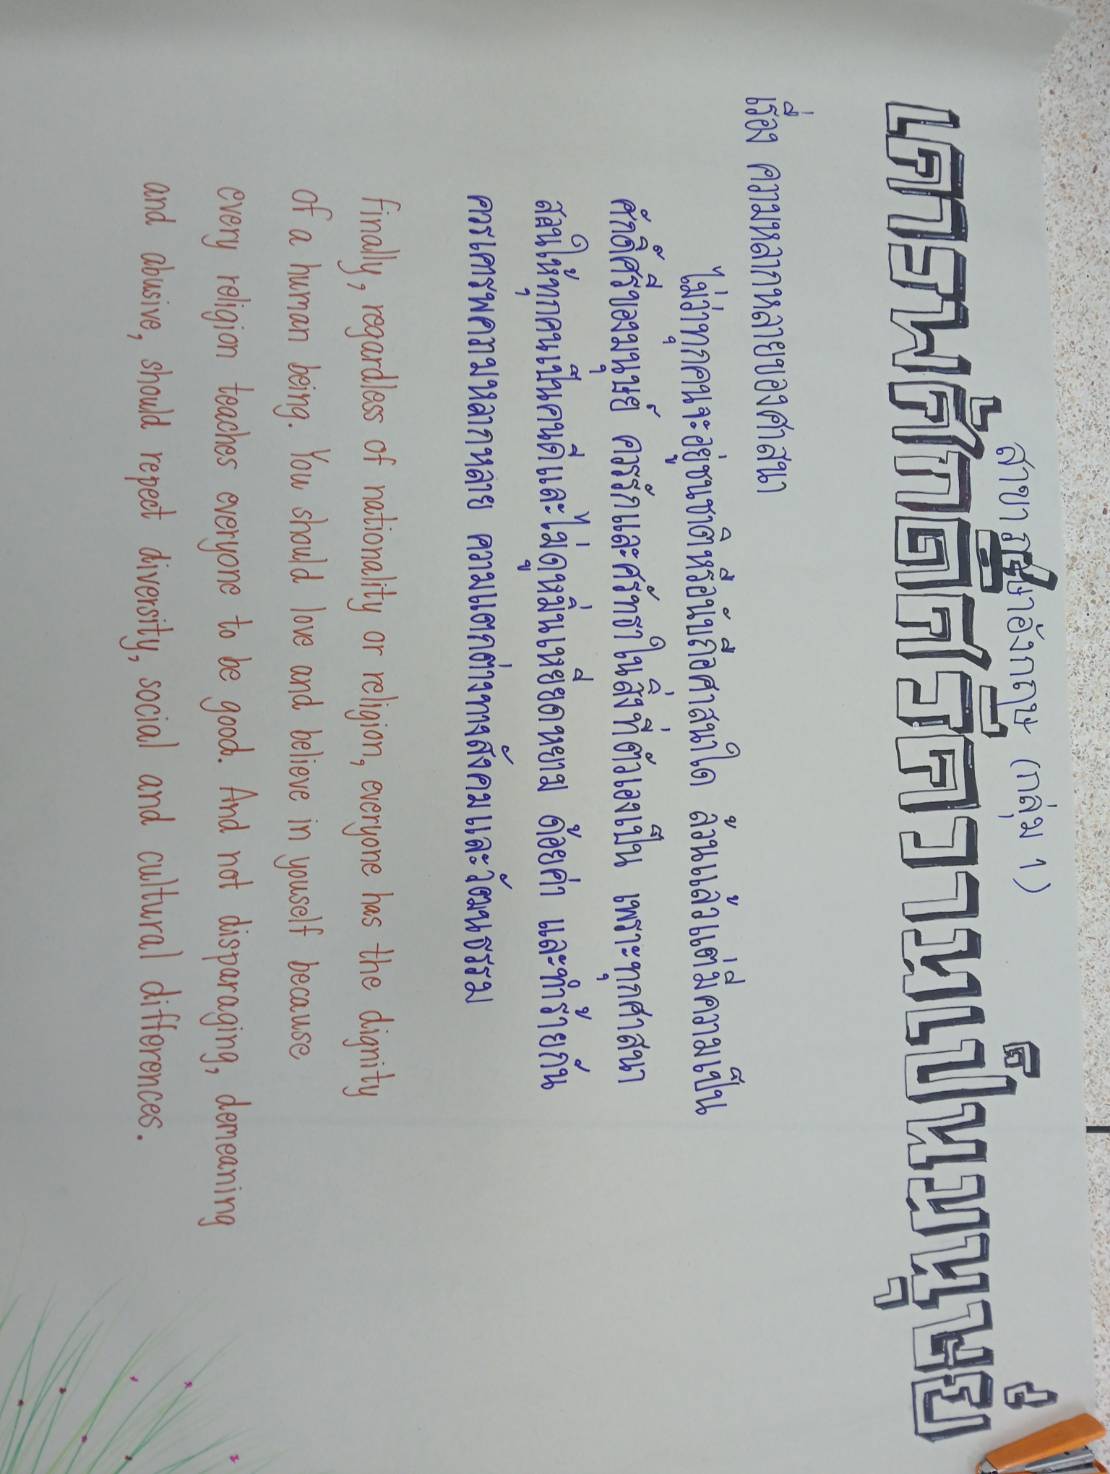 สาขาวิชาภาษาอังกฤษ (กลุ่ม 1)
เคารพศักดิ์ศรีความเป็นมนุษย์
เรื่อง ความหลากหลายของศาสนา
ไม่ว่าทุกคนจะอยู่ชนชาติหรือนับถือศาสนาใด ล้วนแล้วแต่มีความเป็น
ศักดิ์ศรีของมนุษย์ ควรรักและศรัทธาในสิ่งที่ตัวเองเป็น เพราะทุกศาสนา
สอนให้ทุกคนเป็นคนดีและไม่ดูหมิ่นเหยียดหยาม ด้อยค่า และทำร้ายกัน
ควรเคารพความหลากหลาย ความแตกต่างทางสังคมและวัฒนธรรม
finally, regardless of nationality or religion, everyone has the dignity
of a human being. You should love and believe in youself because
every religion teaches everyone to be good. And not disparaging, demeaning
and abusive, should repect diversity, social and cultural differences.